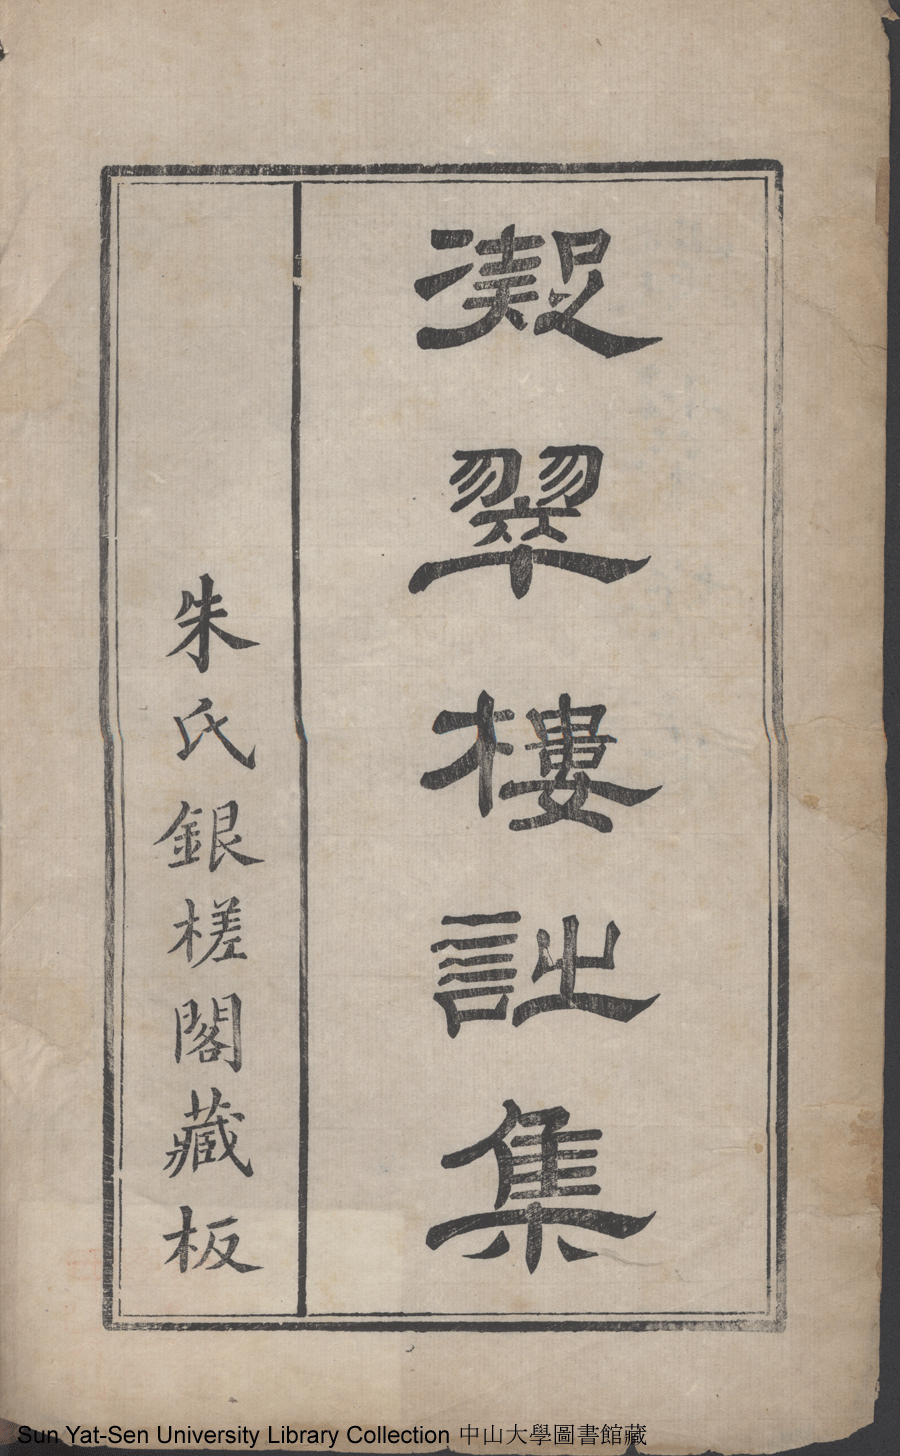 凝翠樓詩集
朱氏銀槎閣藏板
Sun Yat-Sen University Library Collection 中山大學圖書館藏